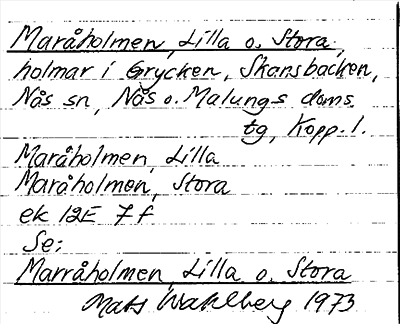 Maråholmen, Lilla o. Stora,
holmar i Grycken, Skansbacken,
Nås sn, Nås o. Malungs doms.
tg, Kopp. l.
Maråholmen, Lilla
Maråholmen, Stora
ek 12E 7f
Se:
Marråholmen, Lilla o. Stora
Mats Wahlberg 1973